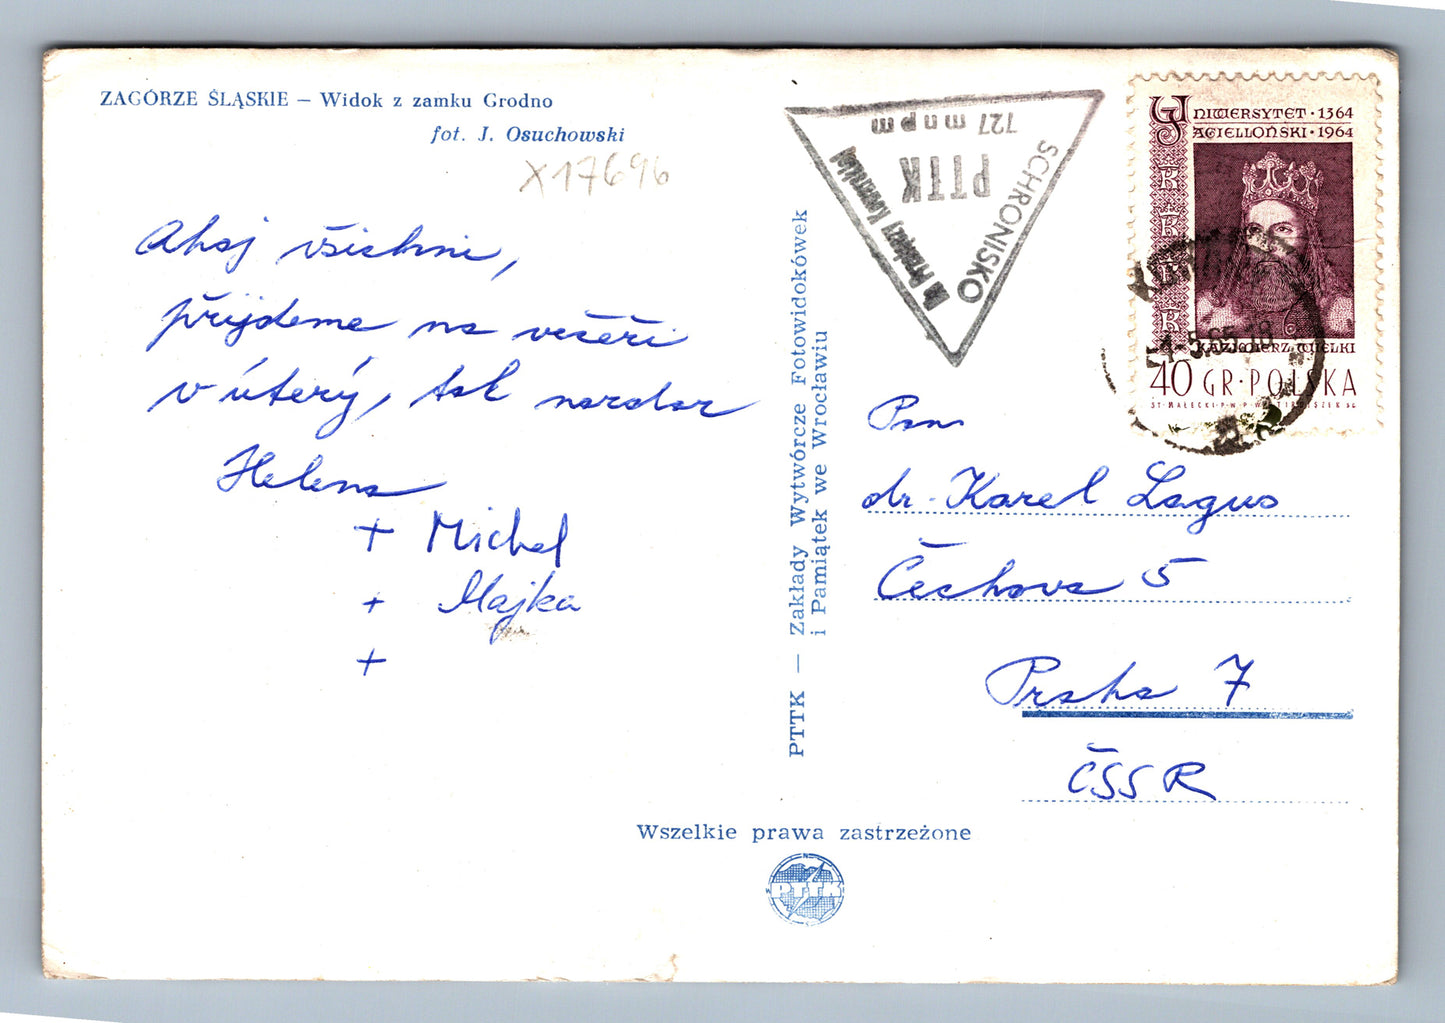 ZAGÓRZE ŚLĄSKIE — Widok z zamku Grodno
fot. J. Osuchowski
X17696
Ahoj všichni,
přijdeme na večeři
v úterý, tak nazdar
Helena
+ Michal
+ Majka
+
PTTK — Zakłady Wytwórcze Fotowidokówek
i Pamiątek we Wrocławiu
SCHRONISKO
Na Przełęczy Kowarskiej
PTTK
727 m n p m
UNIWERSYTET · 1364
JAGIELLOŃSKI · 1964
KAZIMIERZ WIELKI
40 GR · POLSKA
5.65-18
Pan
dr. Karel Lagus
Čechova 5
Praha 7
ČSSR
Wszelkie prawa zastrzeżone
PTTK